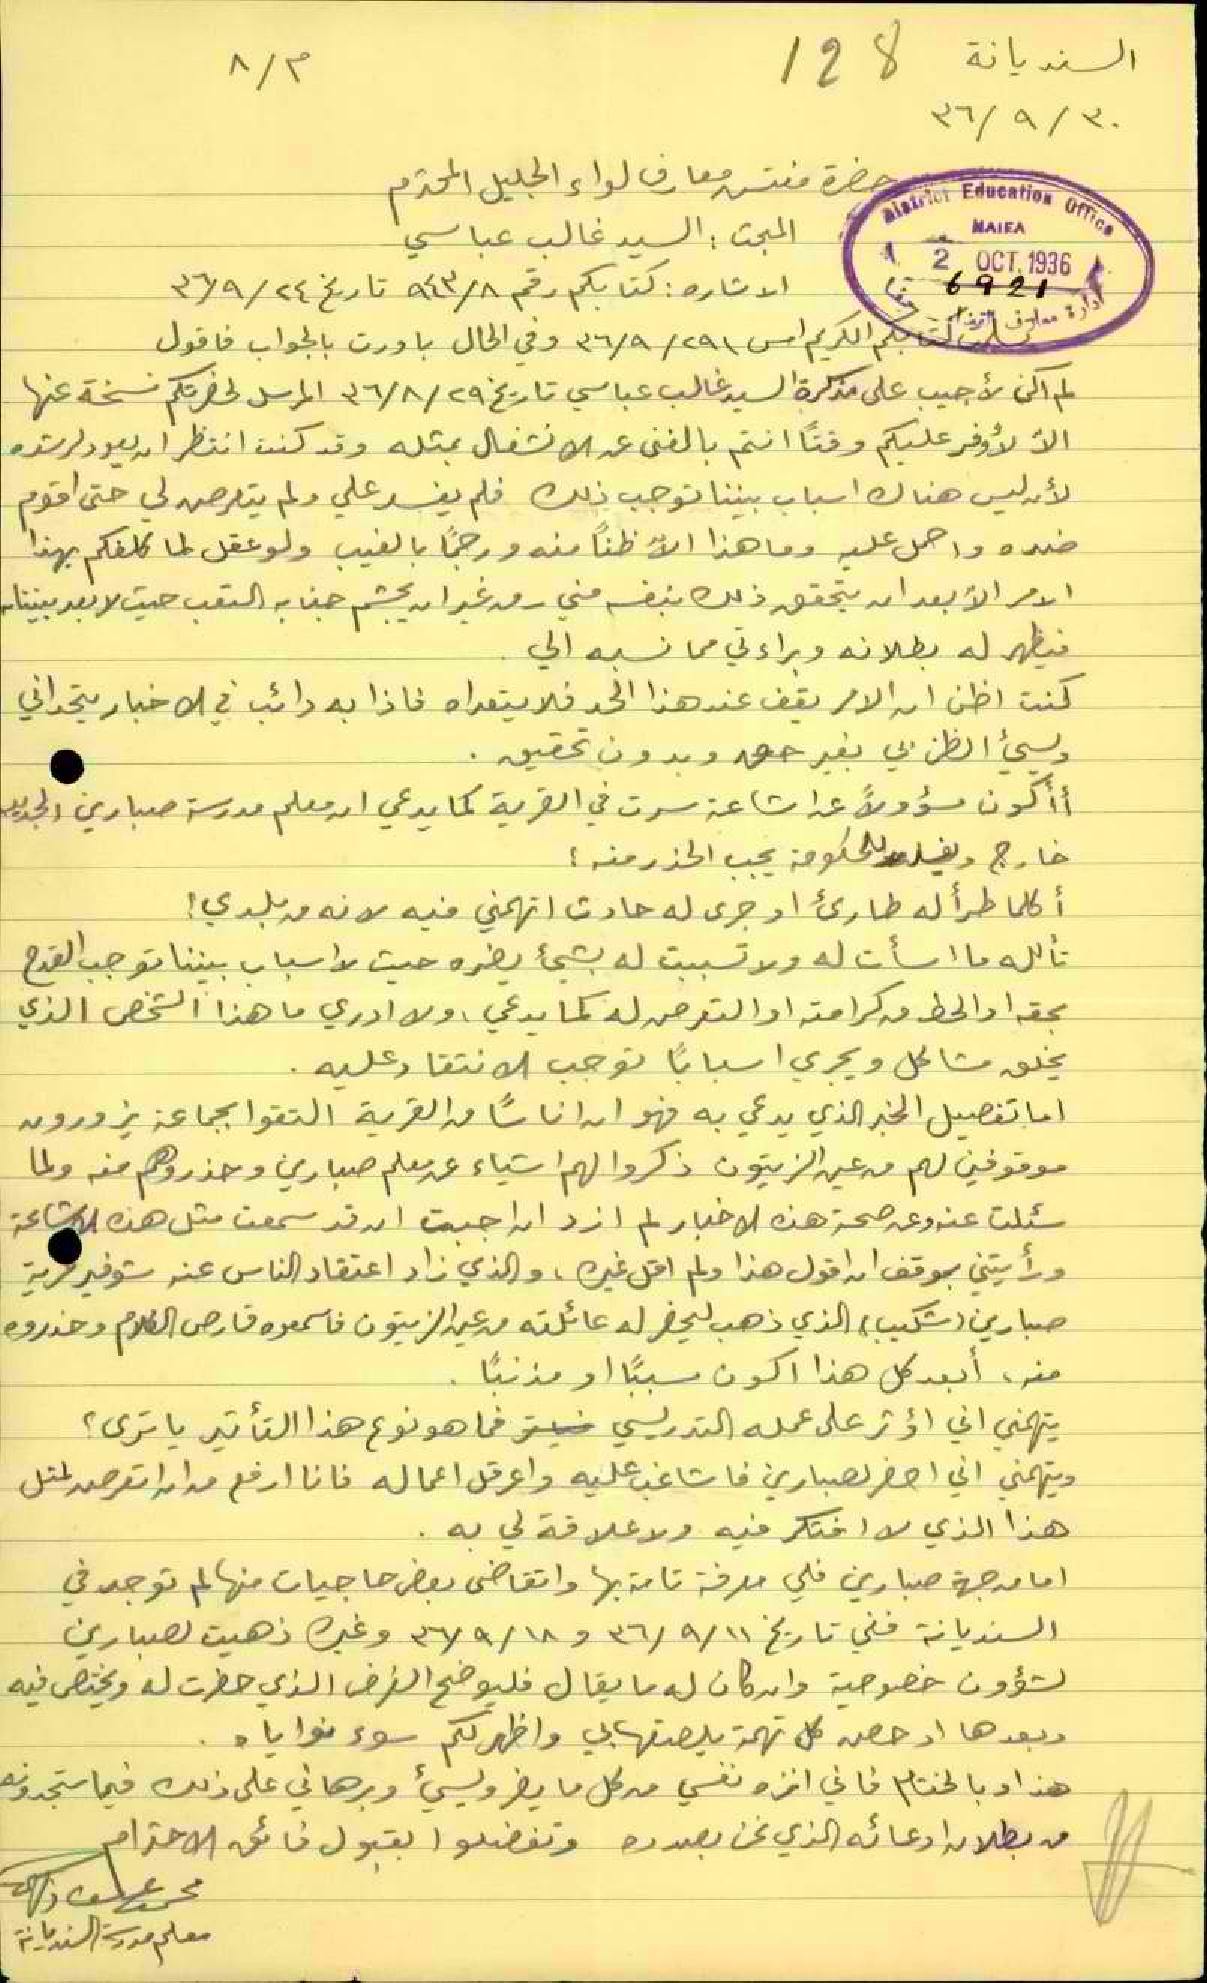 السنديانة 128 م/٨
٣٠/٩/٣٦
حضرة مفتش معارف لواء الجليل المحترم
District Education Office
HAIFA
2 OCT. 1936
6921
المبحث : السيد غالب عباسي
الاشارة : كتابكم رقم ٩٤٣/٨ تاريخ ٢٤/٩/٣٦
كتابكم الكريم امس ٢٩/٩/٣٦ وفي الحال بادرت بالجواب فاقول
لم اكن لأجيب على مذكرة السيد غالب عباسي تاريخ ٢٩/٨/٣٦ المرسل لحضرتكم نسخة عنها
الا لأوفر عليكم وقتاً انتم بالغنى عن الانشغال بمثله وقد كنت انتظر ان يعود لرشده
لأن ليس هناك اسباب بيننا توجب ذلك فلم يفسد علي ولم يتعرض لي حتى اقوم
ضده واحمل عليه وما هذا الا ظناً منه ورجماً بالغيب ولو عقل لما كلفكم بهذا
الامر الا بعد ان يتحقق ذلك بنفسه مني من غير ان يجشم جنابه التعب حيث لا بعد بيننا
فيظهر له بطلانه وبراءتي مما نسبه الي .
كنت اظن ان الامر يقف عند هذا الحد فلا يتعداه فاذا به دائب في الاخبار يتحداني
ويسيئ الظن بي بغير حق وبدون تحقيق .
أأكون مسؤولاً عن اشاعة سرت في القرية كما يدعي ان معلم مدرسة صبارين الجديد
خارج للحكومة يجب الحذر منه ؛
أكلما طرأ له طارئ او جرى له حادث اتهمني فيه لانه من بلدي !
تالله ما اسأت له ولا تسببت له بشيئ يضره حيث لا اسباب بيننا توجب القدح
بحقه او الحط من كرامته او التعرض له كما يدعي ، ولا ادري ما هذا الشخص الذي
يخلق مشاكل ويجري اسباباً توجب الانتقاد عليه .
اما تفصيل الخبر الذي يدعي به فهو ان اناساً من القرية التقوا بجماعة يزورون
موقوفين لهم من عين الزيتون ذكروا لهم اشياء عن معلم صبارين وحذروهم منه ولما
سئلت عنه وعن صحة هذه الاخبار لم ازد ان اجبت ان قد سمعت مثل هذه الاشاعة
ورأيتني بموقف ان اقول هذا ولم اقل غيره ، والذي زاد اعتقاد الناس عنه شوفير قرية
صبارين (شكيب) الذي ذهب ليحضر له عائلته من عين الزيتون فاسمعوه قارص الكلام وحذروه
منه ، أبعد كل هذا اكون مسبباً او مذنباً .
يتهمني اني اؤثر على عمله التدريسي فما هو نوع هذا التأثير يا ترى ؟
ويتهمني اني احضر لصبارين فاشاغب عليه واعرقل اعماله فانا ارفع من ان اتعرض لمثل
هذا الذي لا افتكر فيه ولا علاقة لي به .
اما من جهة صبارين فلي معرفة تامة بها واتقاضى بعض حاجيات منها لم توجد في
السنديانة ففي تاريخ ١١/٩/٣٦ و ١٨/٩/٣٦ وغيره ذهبت لصبارين
لشؤون خصوصية وان كان له ما يقال فليوضح الغرض الذي حضرت له ويختص فيه
وبعدها ادحض كل تهمة يلصقها بي واظهر لكم سوء نواياه .
هذا وبالختام فاني انزه نفسي من كل ما يضر ويسيئ وبرهاني على ذلك فيما ستجدونه
من بطلان ادعائه الذي نحن بصدده وتفضلوا بقبول فائق الاحترام
معلم مدرسة السنديانة